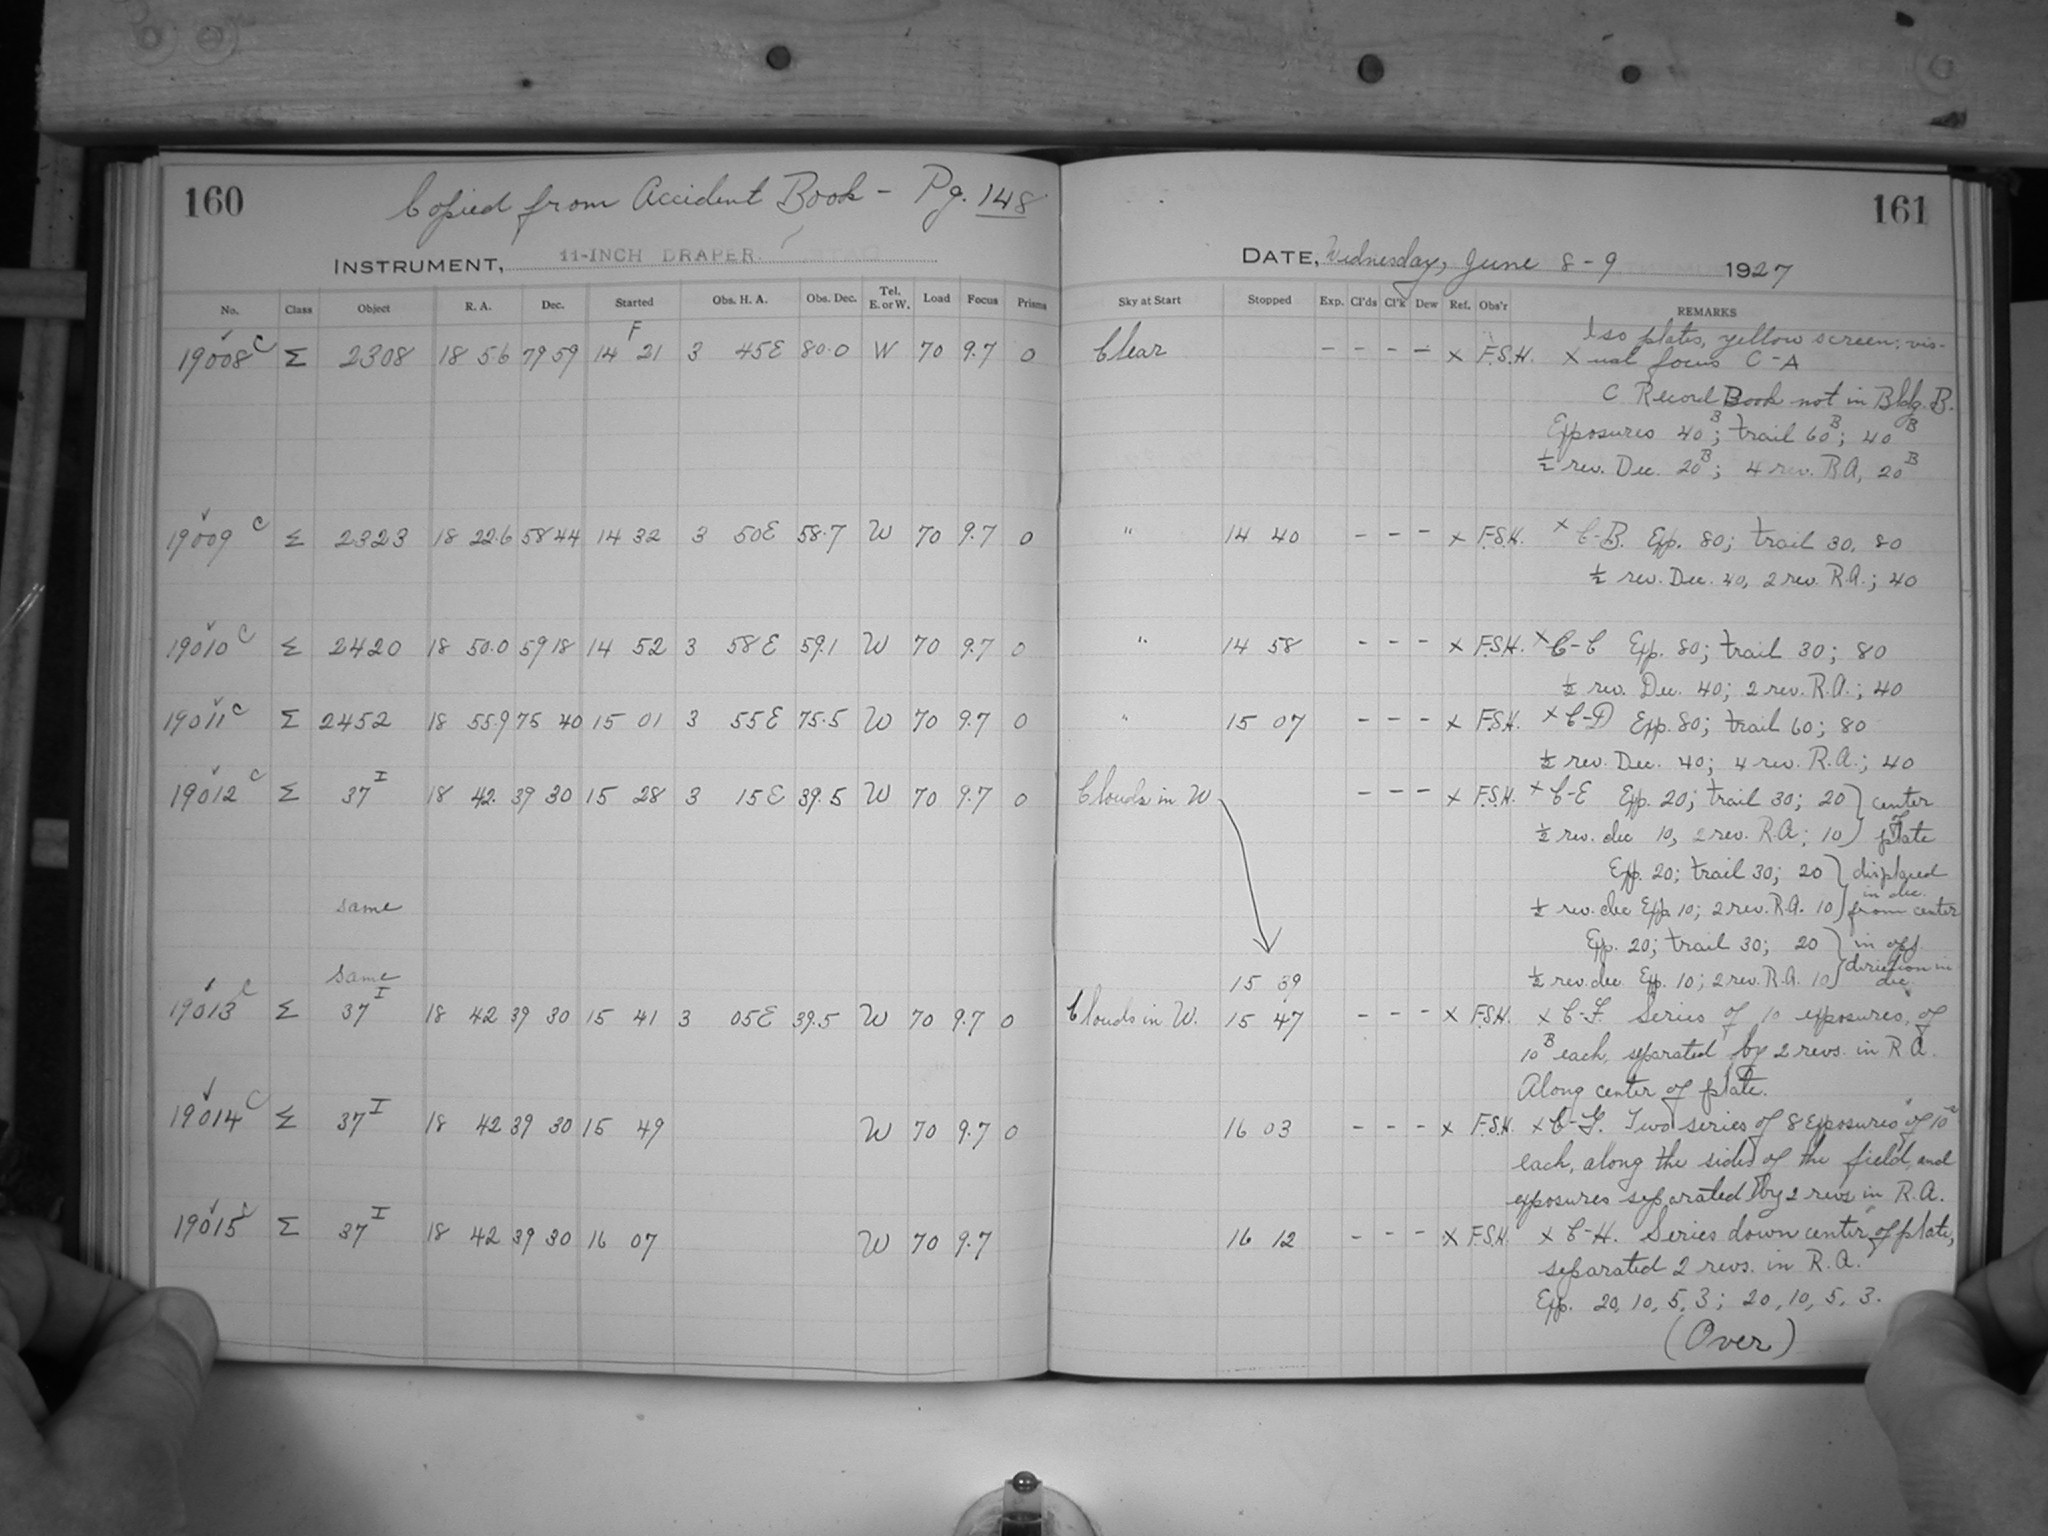 160
Copied from Accident Book - Pg. 148
INSTRUMENT, 11-INCH DRAPER.
No. Class Object R. A. Dec. Started Obs. H. A. Obs. Dec. Tel. E. or W. Load Focus Prisms
F
19008 C Σ 2308 18 56 79 59 14 21 3 45 E 80.0 W 70 9.7 0
19009 C Σ 2323 18 22.6 58 44 14 32 3 50 E 58.7 W 70 9.7 0
19010 C Σ 2420 18 50.0 59 18 14 52 3 58 E 59.1 W 70 9.7 0
19011 C Σ 2452 18 55.9 75 40 15 01 3 55 E 75.5 W 70 9.7 0
19012 C Σ 37 I 18 42. 39 30 15 28 3 15 E 39.5 W 70 9.7 0
same
same
19013 C Σ 37 I 18 42 39 30 15 41 3 05 E 39.5 W 70 9.7 0
19014 C Σ 37 I 18 42 39 30 15 49 W 70 9.7 0
19015 C Σ 37 I 18 42 39 30 16 07 W 70 9.7
161
DATE, Wednesday, June 8-9 1927
Sky at Start Stopped Exp. Cl'ds Cl'k Dew Ref. Obs'r REMARKS
Iso plates, yellow screen; vis-
Clear - - - - x F.S.H. x ual focus C-A
C Record Book not in Bldg. B.
Exposures 40 B; trail 60 B; 40 B
½ rev. Dec. 20 B; 4 rev. R.A, 20 B
" 14 40 - - - x F.S.H. x C-B. Exp. 80; trail 30, 80
½ rev. Dec. 40, 2 rev. R.A.; 40
" 14 58 - - - x F.S.H. x C-C Exp. 80; trail 30; 80
½ rev. Dec. 40; 2 rev. R.A.; 40
" 15 07 - - - x F.S.H. x C-D Exp. 80; trail 60; 80
½ rev. Dec. 40; 4 rev. R.A.; 40
Clouds in W - - - x F.S.H. x C-E Exp. 20; trail 30; 20 } center of
½ rev. dec 10, 2 rev. R.A; 10 } plate
Exp. 20; trail 30; 20 } displaced in dec.
½ rev. dec Exp. 10; 2 rev. R.A. 10 } from center
Exp. 20; trail 30; 20 } in opp.
15 39 ½ rev. dec. Exp. 10; 2 rev. R.A. 10 } direction in dec.
Clouds in W. 15 47 - - - x F.S.H. x C-F. Series of 10 exposures, of
10 B each, separated by 2 revs. in R.A.
Along center of plate.
16 03 - - - x F.S.H. x C-G. Two series of 8 exposures of 10
each, along the sides of the field, and
exposures separated by 2 revs in R.A.
16 12 - - - x F.S.H. x C-H. Series down center of plate,
separated 2 revs. in R.A.
Exp. 20, 10, 5, 3; 20, 10, 5, 3.
(Over)